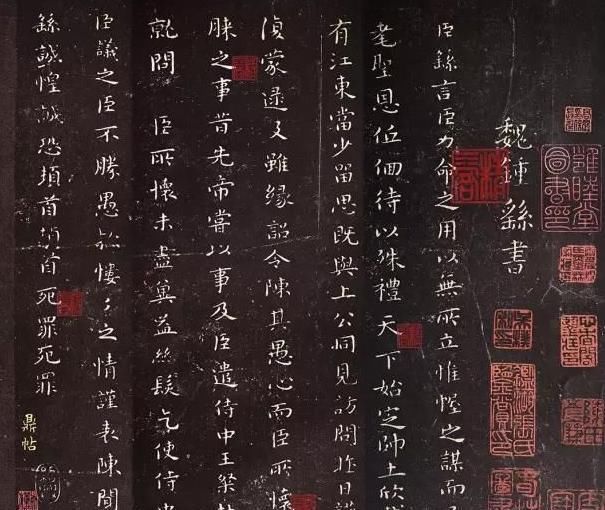 魏鍾繇書
臣繇言臣力命之用以無所立惟幄之謀而
耄聖恩低佪待以殊禮天下始定帥土欣
有江東當少留思既與上公同見訪問昨日
復蒙逮及雖緣詔令陳其愚心而臣所懷
之事昔先帝嘗以事及臣遣侍中王粲
就問 臣所懷未盡冀益絲髮乞使侍
臣議之臣不勝愚款慺々之情謹表陳聞
繇誠惶誠恐頓首頓首死罪死罪
鼎帖